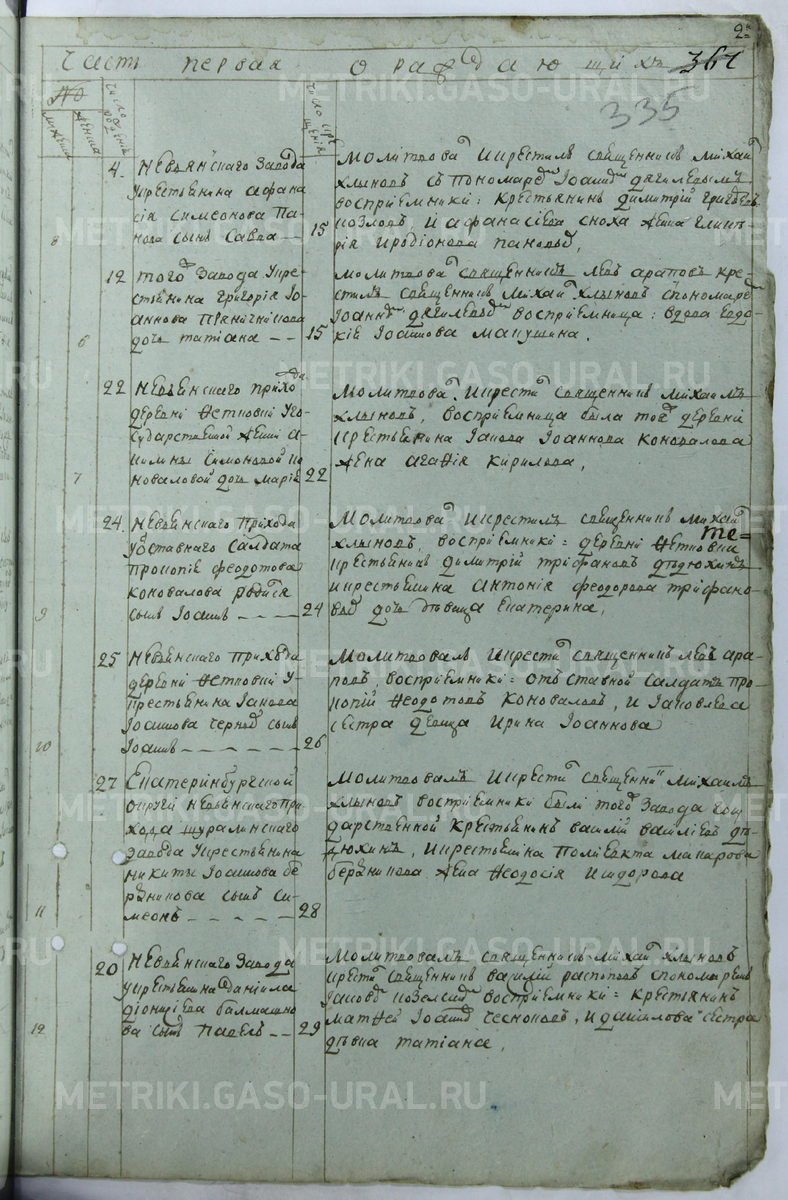 2
Часть первая о раждающихъ 361
335
№
число рожденiя
число крещенiя
мужеска
женска
4.
Невьянскаго Завода
крестьянина Афана
сiя Симеонова Па-
нова сынъ Савва
8
15
Молитвова и крестилъ священникъ Михаи
Хлыновъ съ пономаре Iоанно Дягилевымъ
восприемники: крестьянинъ Димитрiй Григорьевъ
Козловъ, и Афанасiева сноха жена Елипъ-
рiя Иродiонова Пановы,
12
того Завода крес-
тьянина Григорiя Iо-
аннова Пяничникова
дочь Татiана
6
15
молитвова священникъ Левъ Араповъ кре-
стилъ священникъ Михаи Хлыновъ с пономаре
Iоанно Дягилевы восприемница: вдова Евдо-
кiя Iоаннова Макушина.
22
Невьянскаго прихода
деревни Ѳетковки Го-
сударственной жени А-
килины Симоновой Ко-
новаловой дочь Марiя
7
22
Молитвова и крести священникъ Михаилъ
Хлыновъ, восприемница была той деревни
крестьянина Iакова Iоаннова Коновалова
жена Агаѳiя Кирилова,
24.
Невьянскаго прихода
отставнаго солдата
Прокопiя Феодотова
Коновалова
сынъ Iоаннъ
9
24
Молитвова и крестилъ священникъ Михаи
Хлыновъ, восприемники: деревни Ѳетковки
те=
крестьянинъ Димитрiй Трифановъ Дѣдюхинъ
и крестьянина Антонiя Феодорова Трифано-
вы дочь дѣвица Екатерина,
25
Невьянскаго прихода
деревни Ѳетковки к
рестьянина Iакова
Iоаннова Черны сынъ
Iоаннъ
10
26
Молитвовалъ и крести священникъ Левъ Ара-
повъ, восприемники: отъставной солдатъ Про-
копiй Ѳеодотовъ Коноваловъ, и Iаковлева
сестра девица Ирина Iоаннова
27
Екатеринбургской
округи Невьянскаго при-
хода Шуралинскаго
завода крестьянина
Никиты Iоаннова Бе-
резникова сынъ Си-
меонъ
11
28
Молитвовалъ и крести священни Михаилъ
Хлыновъ восприемники были того Завода госу
дарственной крестьянинъ Василiй Василiевъ Дѣ-
дюхинъ, и крестьянина Полiевкта Макарова
Березникова жена Ѳеодосiя Исидорова
20
Невьянскаго Завода
крестьянина Данiила
Дiонисiева Балмашно
ва сынъ Павелъ
12
29
Молитвовалъ священникъ Михаи Хлыновъ
крести священникъ Василiй Распоповъ с пономаремъ
Iаково Козельски восприемники: крестьянинъ
Матѳей Iоанно Чесноковъ, и Данилова сестра
дѣвка Татiана,